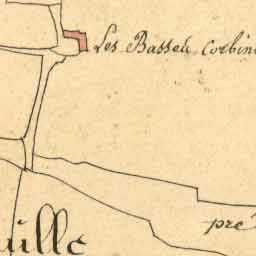 Les Basses Corbin
pré
uille